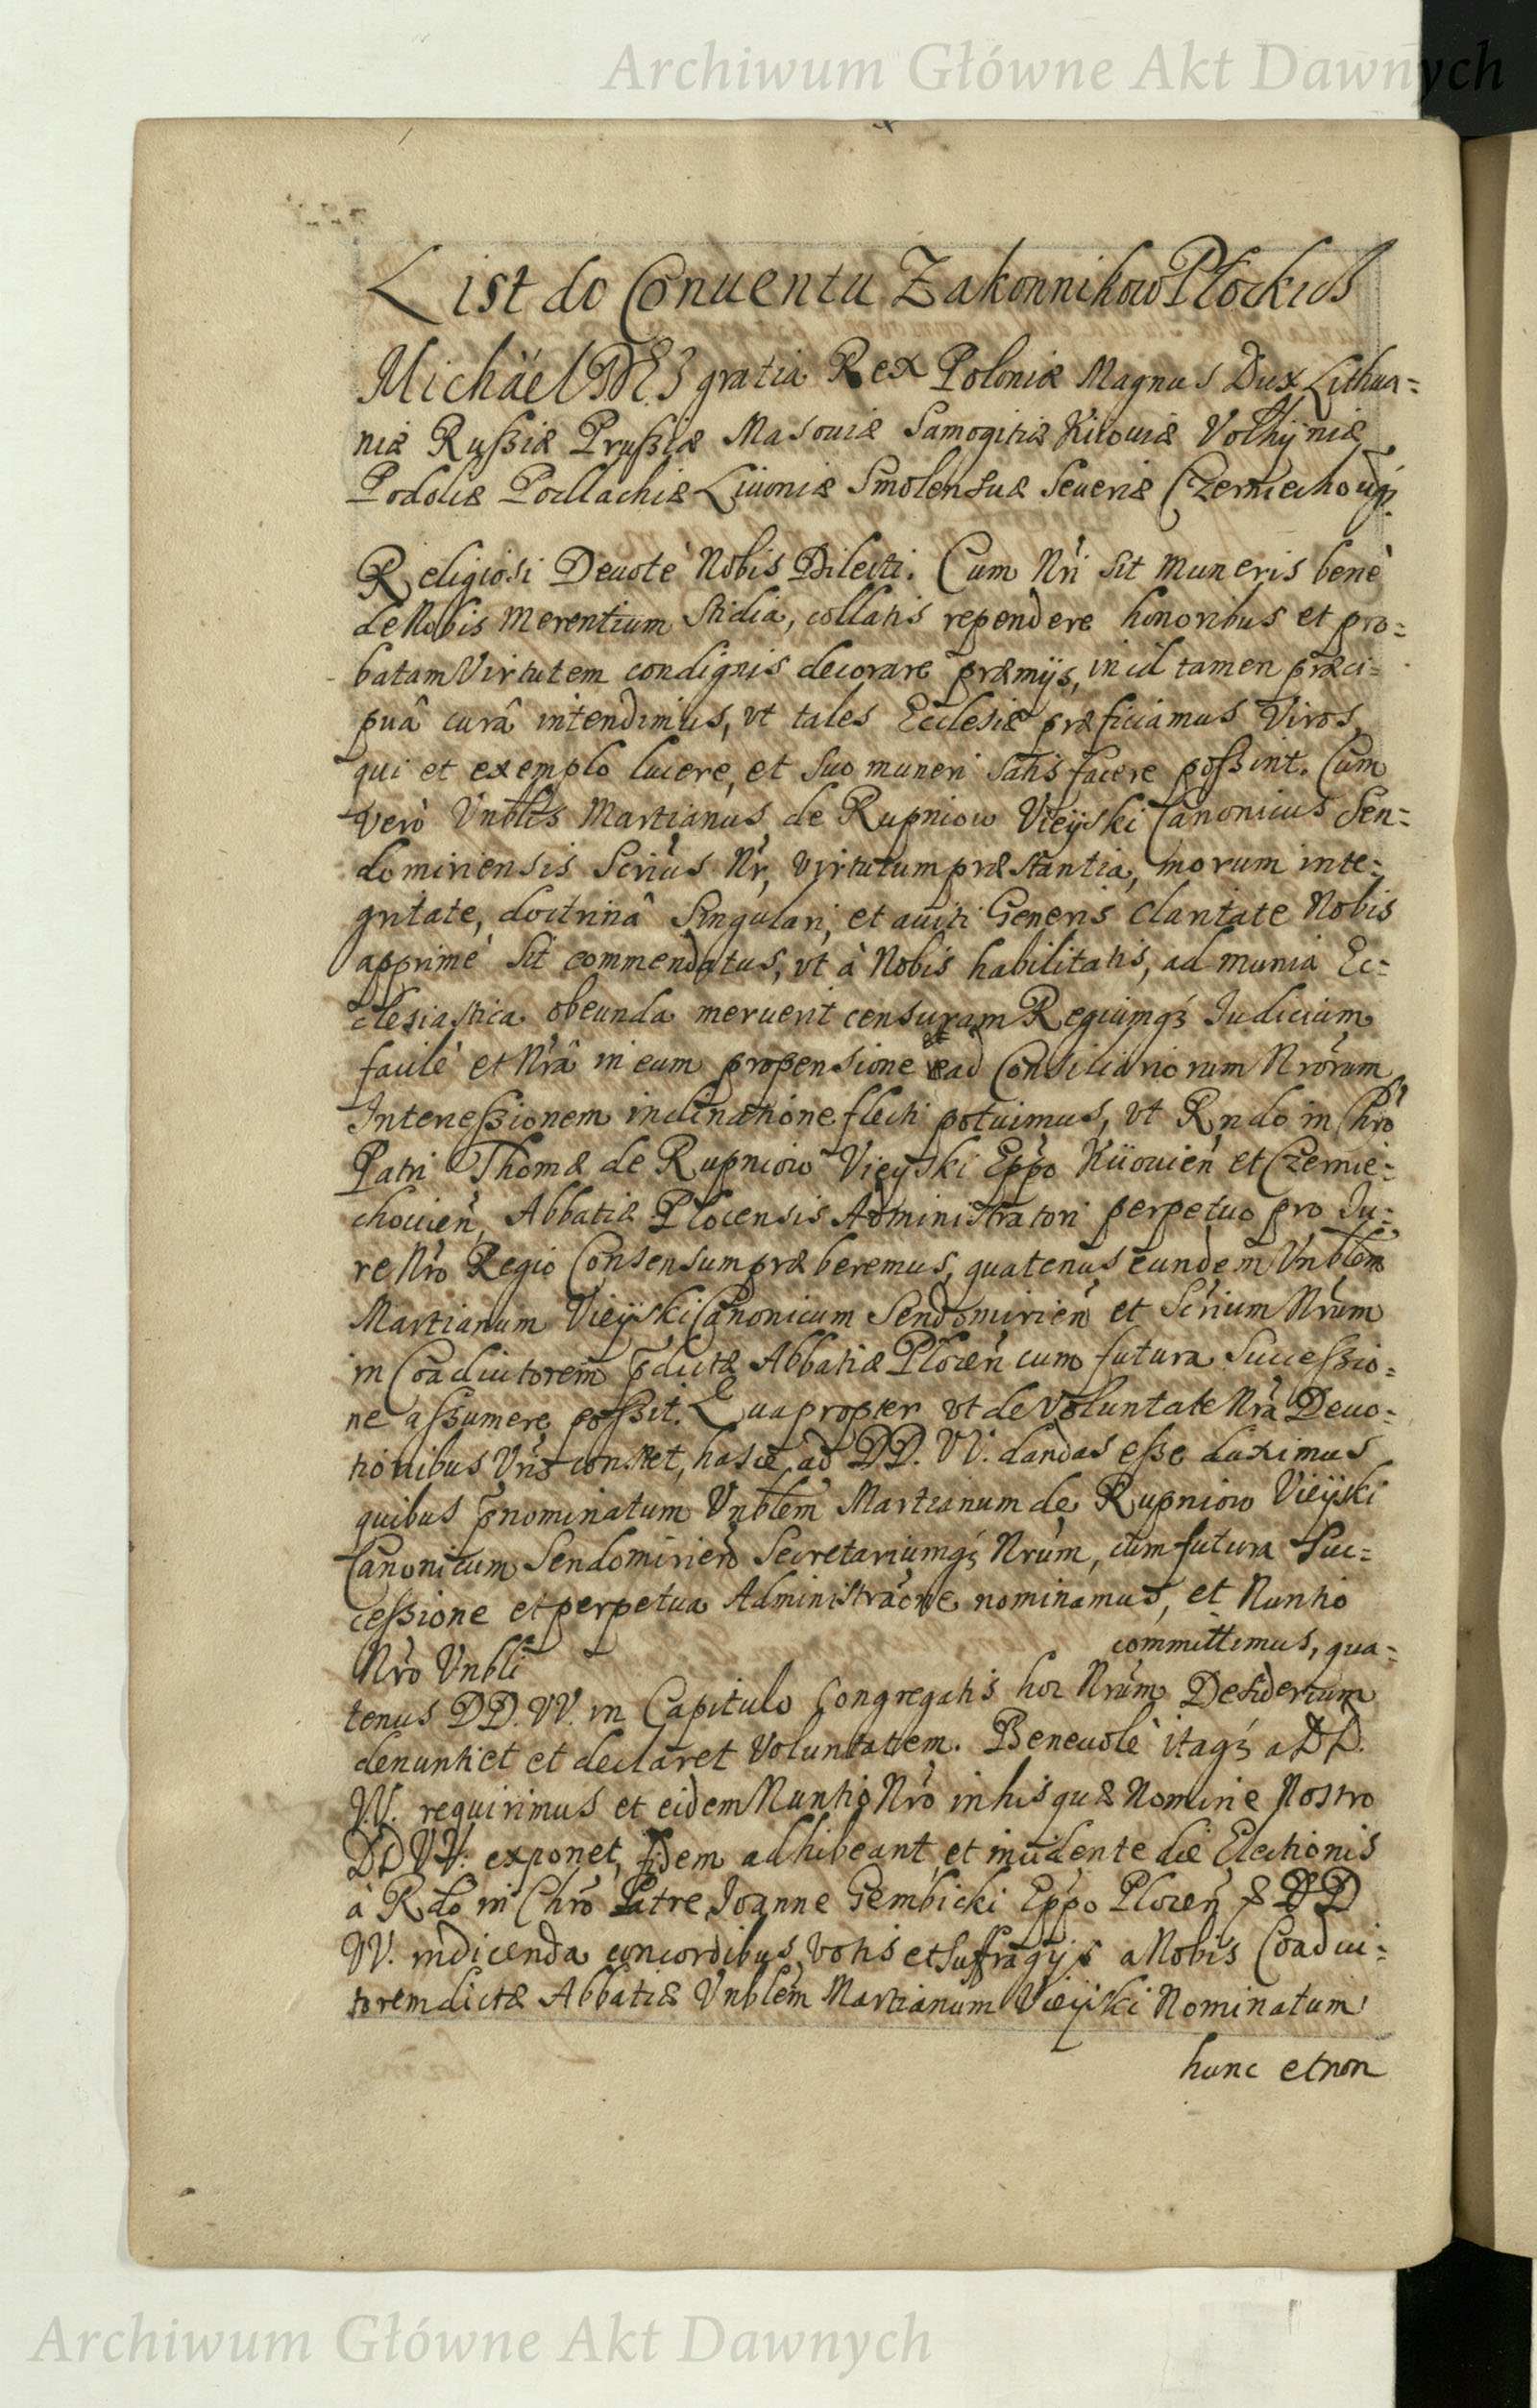 Archiwum Główne Akt Dawnych
List do Conuentu Zakonnikow Płockich
Michäel DEI gratia Rex Poloniæ Magnus Dux Lithua=
niæ Rußiæ Prußiæ Masouiæ Samogitiæ Kiiouiæ Volhyniæ
Podoliæ Podlachiæ Liuoniæ Smolensciæ Seueriæ Czerniechouiæq́;
Religiosi Deuotè Nobis Dilecti. Cum Nri sit muneris benè
de Nobis merentium Studia, collatis rependere honoribus et pro=
batam Virtutem condignis decorare præmijs, in id tamen præci=
puâ curâ intendimus, vt tales Ecclesiæ præficiamus Viros,
qui et exemplo lucere, et suo muneri satisfacere poßint. Cum
verò Vnblis Martianus de Rupniow Vieÿski Canonicus Sen=
domiriensis Scrius Nr, virtutum præstantia, morum inte=
gritate, doctrinâ singulari, et auiti Generis claritate Nobis
apprimè sit commendatus, vt à Nobis habilitatis, ad munia Ec=
clesiastica obeunda meruerit censuram Regiumq́; Iudicium
facilè et Nrâ in eum propensione et ad Consiliariorum Nrorum
Interceßionem inclinatione flecti potuimus, vt Rndo in Chro
Patri Thomæ de Rupniow Vieyski Eppo Kiiouien et Czernie=
chouien, Abbatiæ Plocensis Administratori perpetuo pro Iu=
re Nro Regio Consensum præberemus, quatenus eundem Vnblem
Martianum Vieÿski Canonicum Sendomirien et Scrium Nrum
in Coadiutorem p̄dictæ Abbatiæ Plocen cum futura Succeßio=
ne aßumere poßit. Quapropter vt de Voluntate Nra Deuo=
tionibus Vris constet, hasce ad DD. VV. dandas eße duximus
quibus p̄nominatum Vnblem Martianum de Rupniow Vieÿski
Canonicum Sendomirien Secretariumq́; Nrum, cum futura Suc=
ceßione et perpetua Administraone nominamus, et Nuntio
Nro Vnbli committimus, qua=
tenus DD. VV. in Capitulo Congregatis hoc Nrum Desiderium
denuntiet et declaret Voluntatem. Beneuolè itaq́; a DD.
VV. requirimus et eidem Nuntio Nro in his quæ Nomine Nostro
DD VV. exponet, fidem adhibeant et incidente die Electionis
à Rdo in Chro Patre Ioanne Gembicki Eppo Plocen & DD
VV. indicenda concordibus votis et suffragijs a Nobis Coadiu=
torem dictæ Abbatiæ Vnblem Martianum Vieÿski Nominatum
hunc et non
Archiwum Główne Akt Dawnych